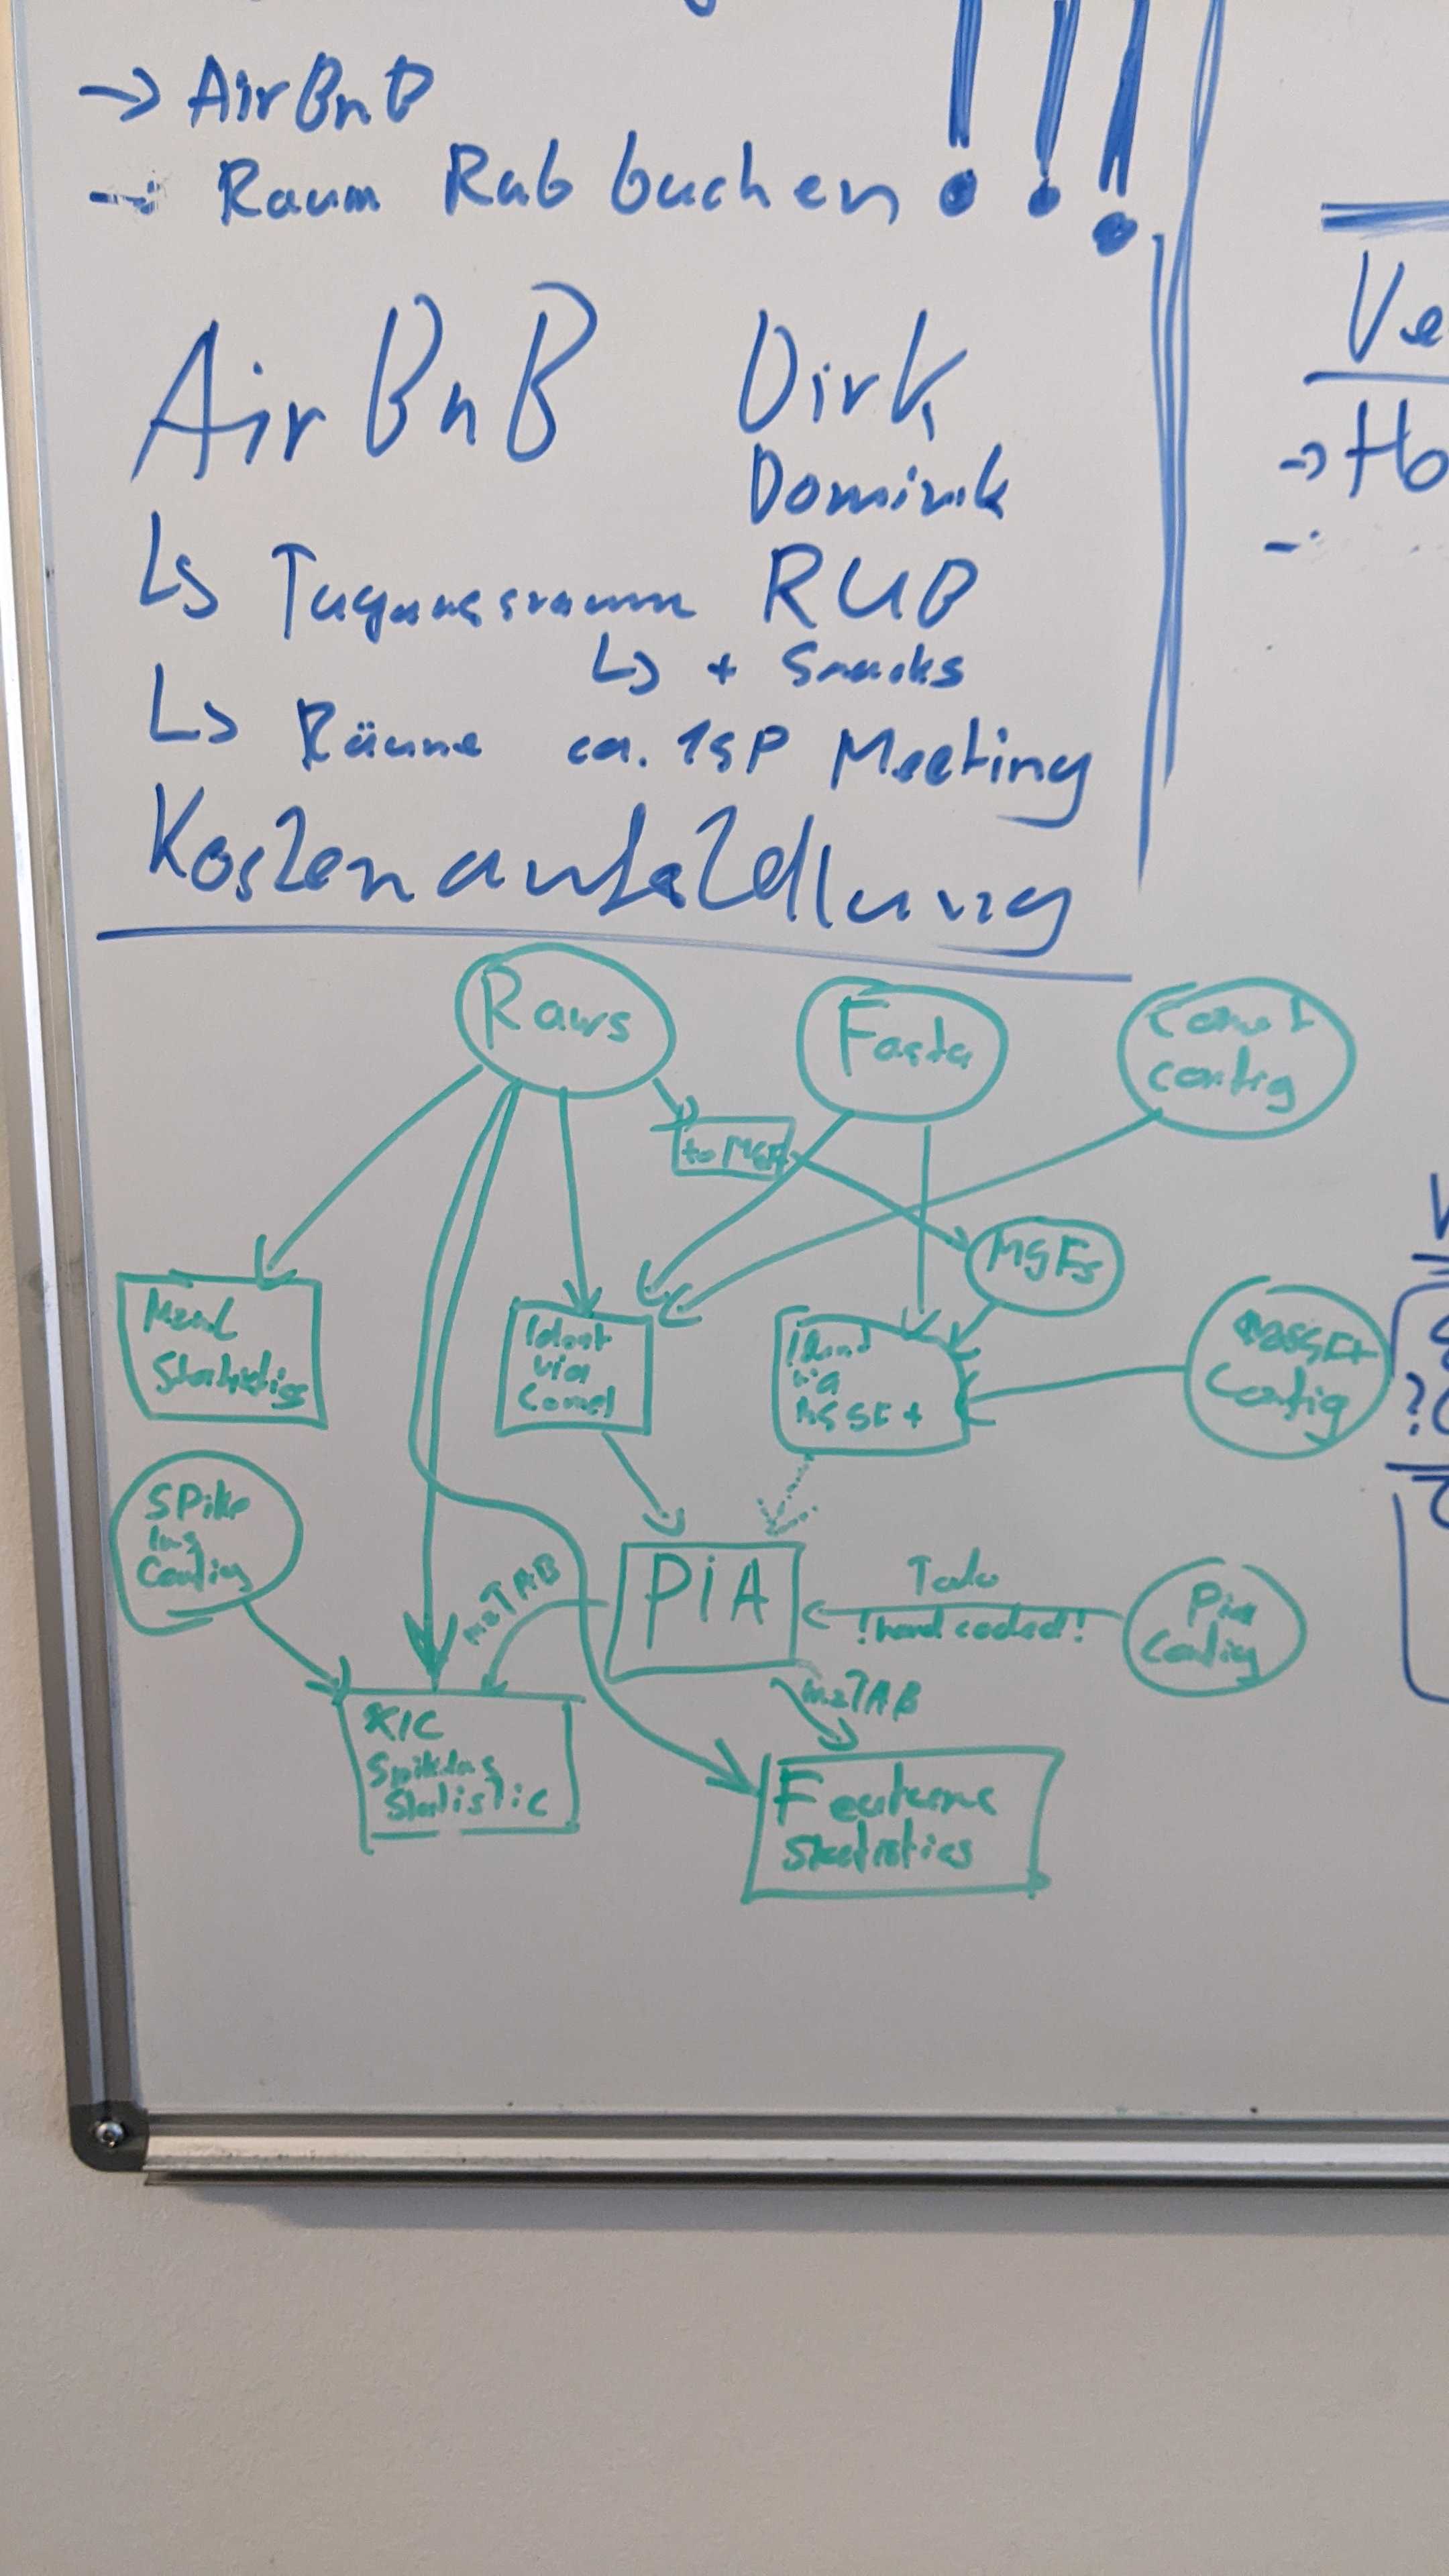 → AirBnB
→ Raum Rub buchen !!!
AirBnB Dirk
Dominik
↳ Tagungsraum RUB
↳ + Snacks
↳ Räume ca. 15P Meeting
Kostenaufstellung
Raws
Fasta
Comet
config
to MGF
MGFs
Statistics
Ident
via
Comet
Ident
via
MSGF+
MSGF+
Config
SPike
Ins
Config
mzTAB
PiA
Todo
!hard coded!
Pia
Config
mzTAB
XIC
SpikeIns
Statistic
Features
Statistics
Ve
→ Ho